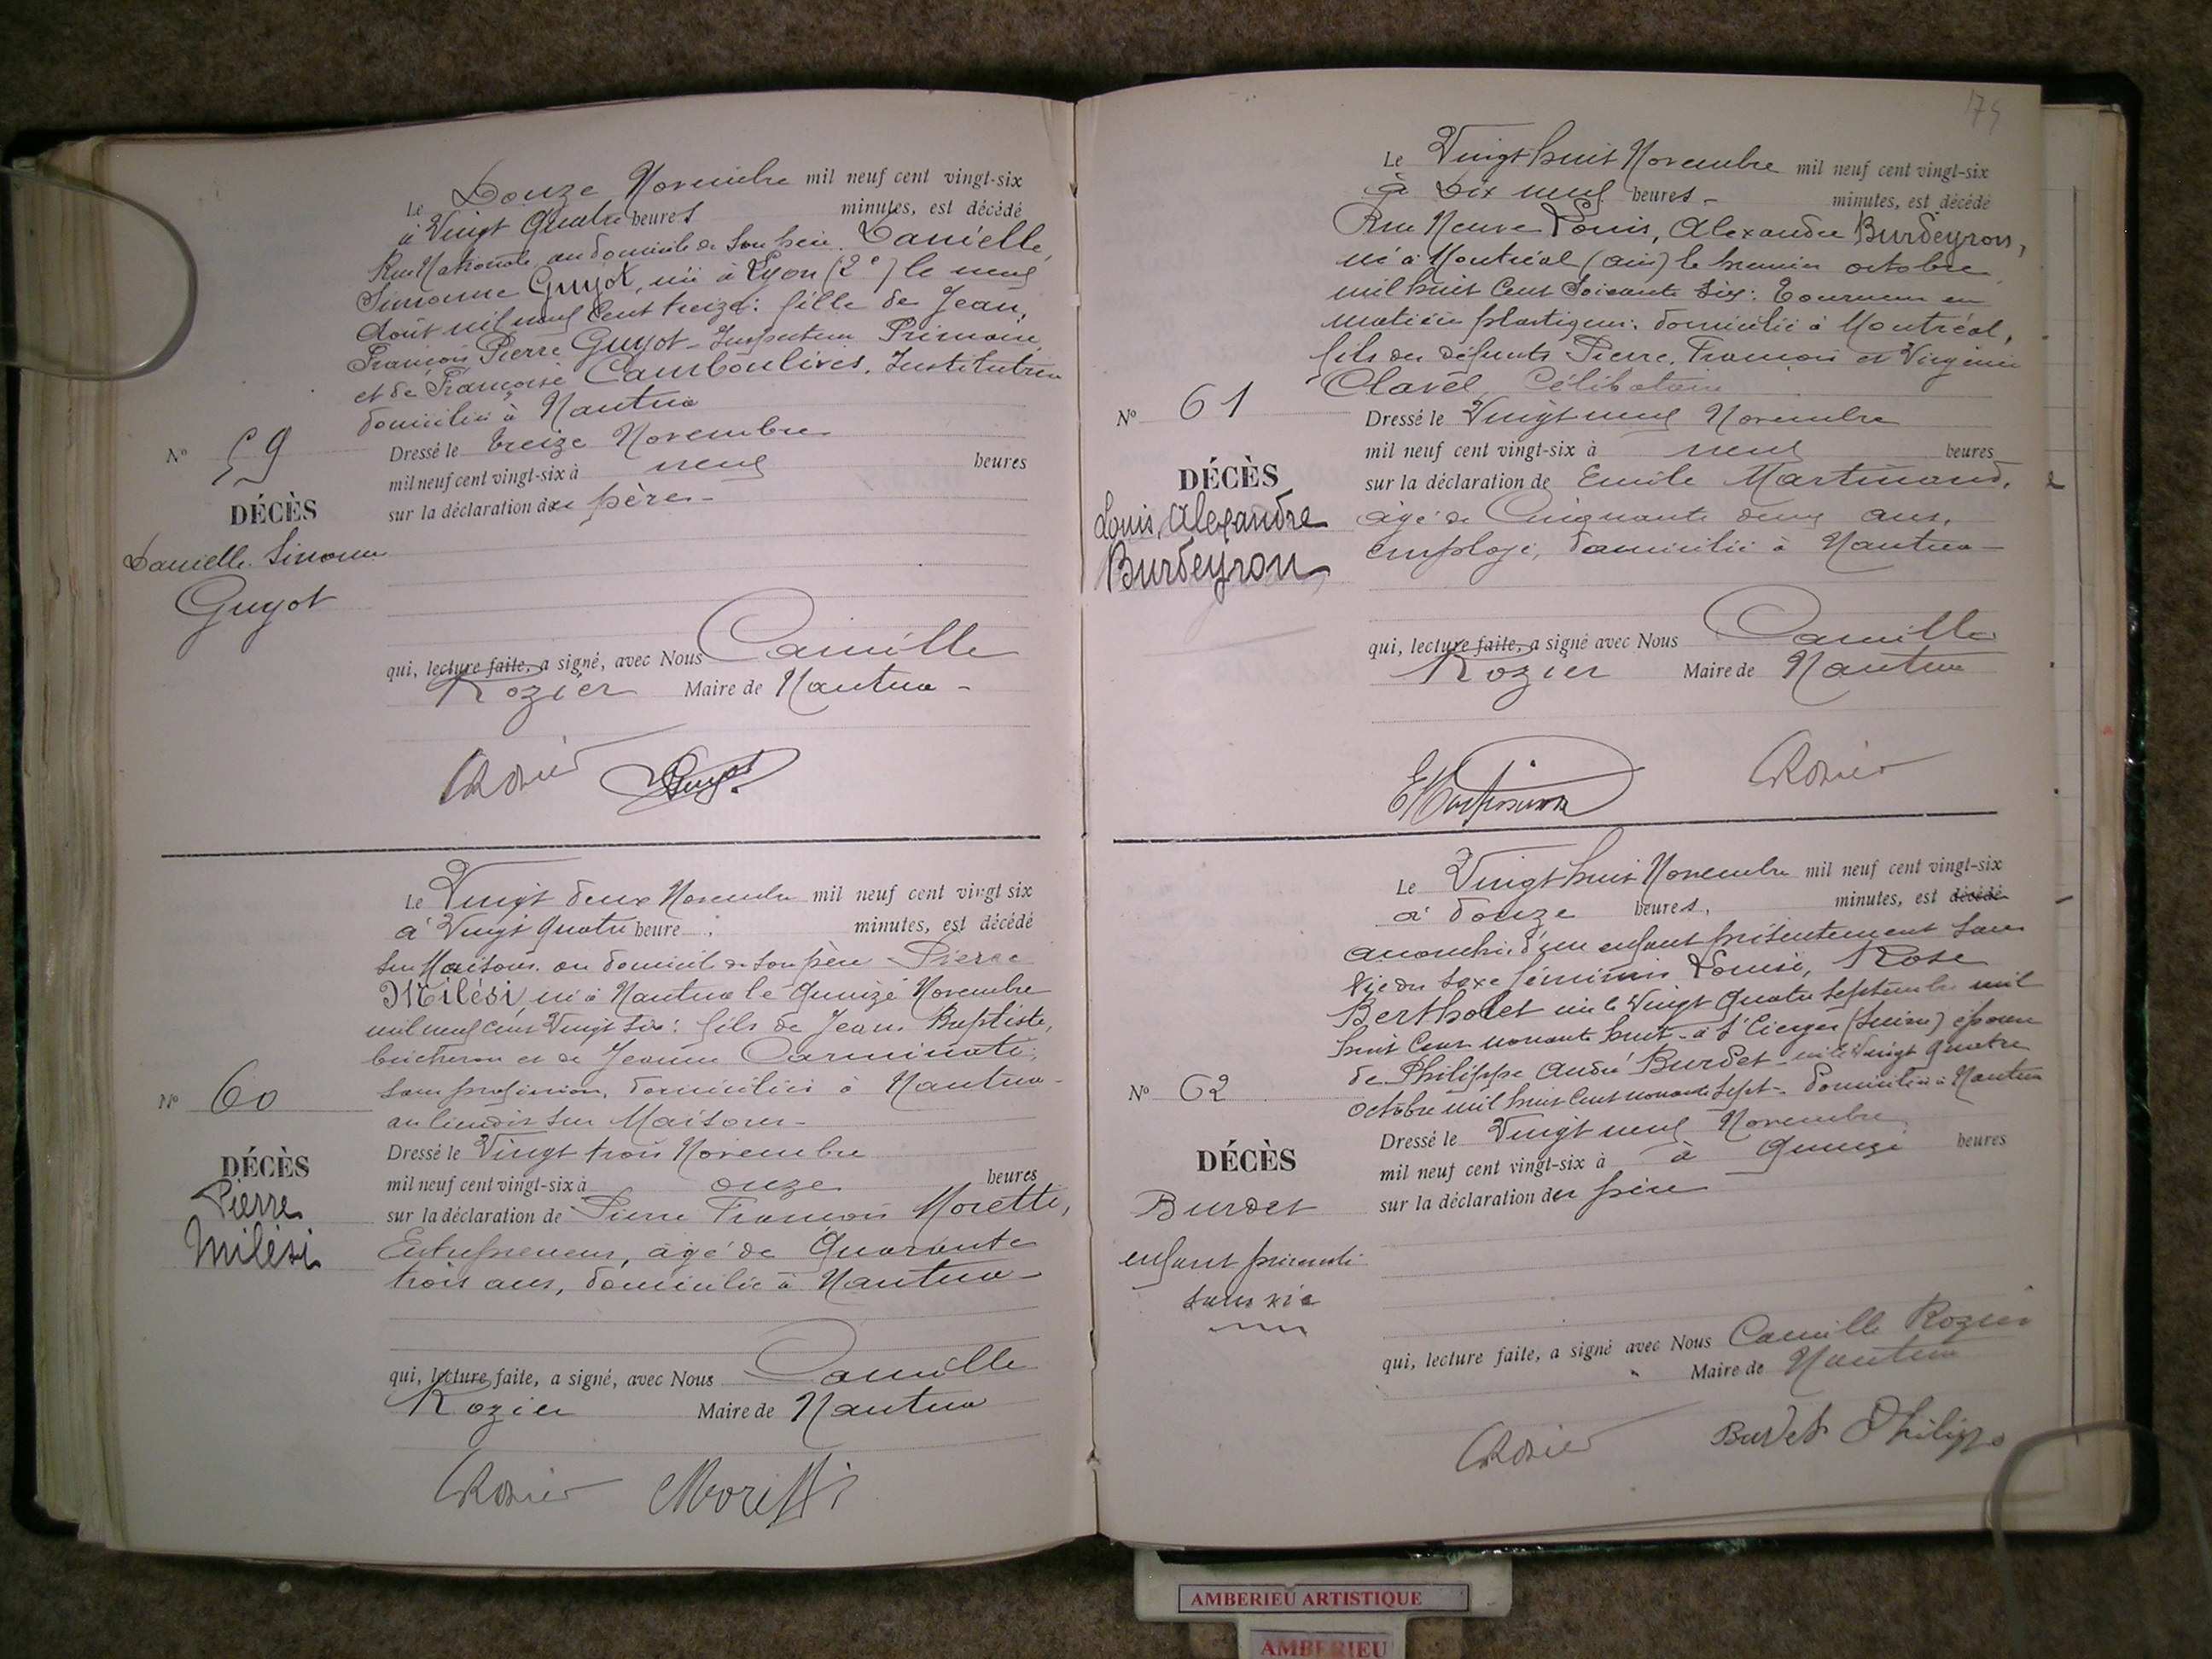 Le Douze Novembre mil neuf cent vingt-six
à Vingt Quatre heures minutes, est décédé
Rue Nationale au domicile de son père Danielle,
Simonne Guyot, née à Lyon (2e) le neuf
Août mil neuf cent treize: fille de Jean,
François Pierre Guyot Inspecteur Primaire
et de Françoise Camboulives, Institutrice
domiciliés à Nantua
No 59
Dressé le treize Novembre
mil neuf cent vingt-six à neuf heures
sur la déclaration du père
DÉCÈS
Danielle Simonne
Guyot
qui, lecture faite, a signé, avec Nous Camille
Rozier Maire de Nantua
CRozier Guyot
Le Vingt deux Novembre mil neuf cent vingt six
à Vingt Quatre heure minutes, est décédé
Sur Maisons, au domicile de son père Pierre
Milési, né à Nantua le Quinze Novembre
mil neuf cent Vingt six: fils de Jean Baptiste,
bûcheron et de Jeanne Carminati,
sans profession, domiciliés à Nantua
au lieudit sur Maisons
No 60
Dressé le Vingt trois Novembre
mil neuf cent vingt-six à onze heures
sur la déclaration de Pierre François Moretti,
Entrepreneur, âgé de Quarante
trois ans, domicilié à Nantua
DÉCÈS
Pierre
Milési
qui, lecture faite, a signé, avec Nous Camille
Rozier Maire de Nantua
CRozier Moretti
174
Le Vingt huit Novembre mil neuf cent vingt-six
à Dix neuf heures minutes, est décédé
Rue Neuve Louis, Alexandre Burdeyron,
né à Montréal (Ain) le premier octobre
mil huit cent soixante six: Tourneur en
matière plastique: domicilié à Montréal,
fils des défunts Pierre, François et Virginie
Clavel, Célibataire
No 61
Dressé le Vingt neuf Novembre
mil neuf cent vingt-six à neuf heures
sur la déclaration de Emile Martinand,
âgé de Cinquante deux ans,
employé, domicilié à Nantua
DÉCÈS
Louis, Alexandre
Burdeyron
qui, lecture faite, a signé avec Nous Camille
Rozier Maire de Nantua
EMartinand CRozier
Le Vingt huit Novembre mil neuf cent vingt-six
à douze heures, minutes, est décédé
accouchée d'un enfant présentement sans
vie du sexe féminin Louise, Rose
Bertholet née le Vingt Quatre Septembre mil
huit cent nonante huit à St Cierges (Suisse) épouse
de Philippe André Burdet né le Vingt Quatre
Octobre mil huit cent nonante sept domiciliés à Nantua
No 62
Dressé le Vingt neuf Novembre
mil neuf cent vingt-six à à Quinze heures
sur la déclaration du père
DÉCÈS
Burdet
enfant présenté
sans vie
qui, lecture faite, a signé avec Nous Camille Rozier
Maire de Nantua
CRozier Burdet Philippe
AMBERIEU ARTISTIQUE
AMBERIEU